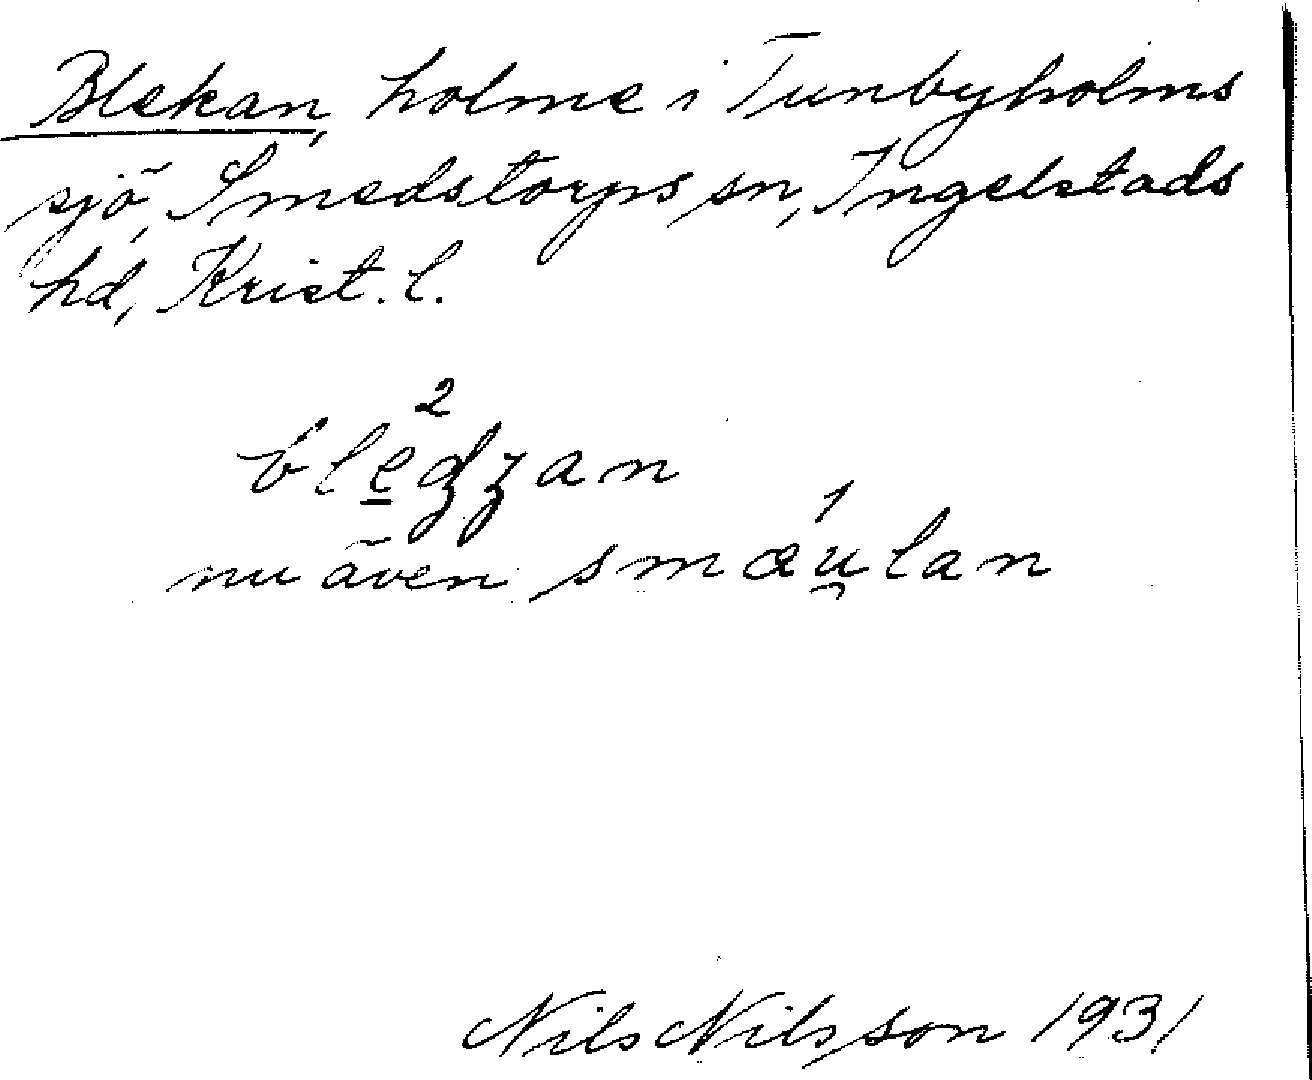 Blekan, holme i Tunbyholms
sjö, Smedstorps sn, Ingelstads
hd, Krist. l.
2
ble̲dzan
1
nu även smæu̯lan
Nils Nilsson 1931